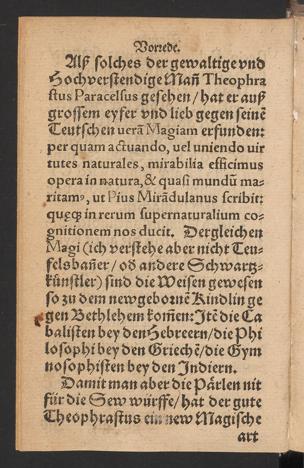 Vorrede.
Alß solches der gewaltige vnd
Hochverstendige Mañ Theophra
stus Paracelsus gesehen / hat er auß
grossem eyfer vnd lieb gegen seinē
Teutschen uerā Magiam erfunden:
per quam actuando, uel uniendo uir
tutes naturales, mirabilia efficimus
opera in natura, & quasi mundū ma-
ritamꝰ, ut Pius Mirādulanus scribit:
quęq; in rerum supernaturalium co-
gnitionem nos ducit. Dergleichen
Magi (ich verstehe aber nicht Teu-
felsbañer / oď andere Schwartz-
künstler) sind die Weisen gewesen
so zu dem newgebornē Kindlin ge
gen Bethlehem kom̃en: Itē die Ca
balisten bey den Hebreern / die Phi
losophi bey den Griechē / die Gym
nosophisten bey den Indiern.
Damit man aber die Pärlen nit
für die Sew würffe / hat der gute
Theophrastus ein new Magische
art